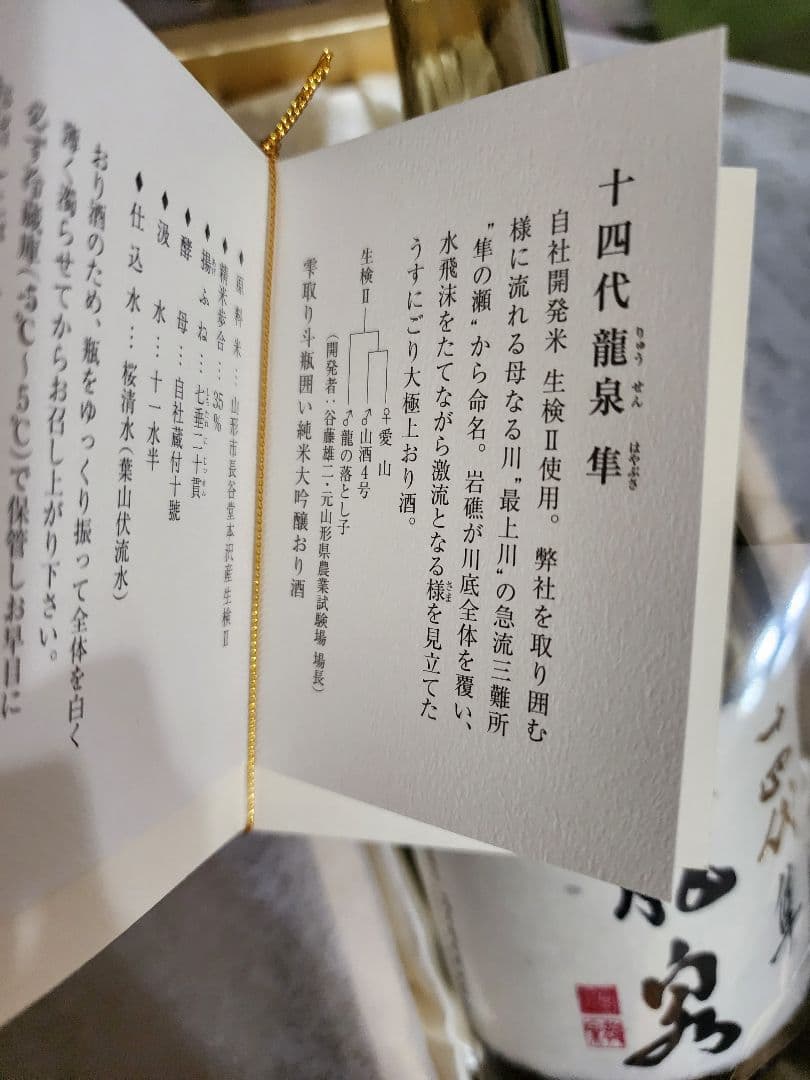 十四代龍泉 隼
りゅう せん はやぶさ
自社開発米 生検Ⅱ使用。 弊社を取り囲む
様に流れる母なる川”最上川“の急流三難所
”隼の瀬“から命名。岩礁が川底全体を覆い、
水飛沫をたてながら激流となる様を見立てた
さま
うすにごり大極上おり酒。
生検Ⅱ
♀愛山
♂山酒4号
♂龍の落とし子
(開発者:谷藤雄二・元山形県農業試験場 場長)
雫取り斗瓶囲い純米大吟醸おり酒
♦原料米…山形市長谷堂本沢産生検Ⅱ
♦精米歩合…35%
♦揚ふね…七垂二十貫
♦酵母…自社蔵付十號
♦汲水…十一水半
♦仕込水…桜清水(葉山伏流水)
おり酒のため、瓶をゆっくり振って全体を白く
薄く濁らせてからお召し上がり下さい。
必ず冷蔵庫(-5℃~5℃)で保管しお早目に
十四代
隼
泉